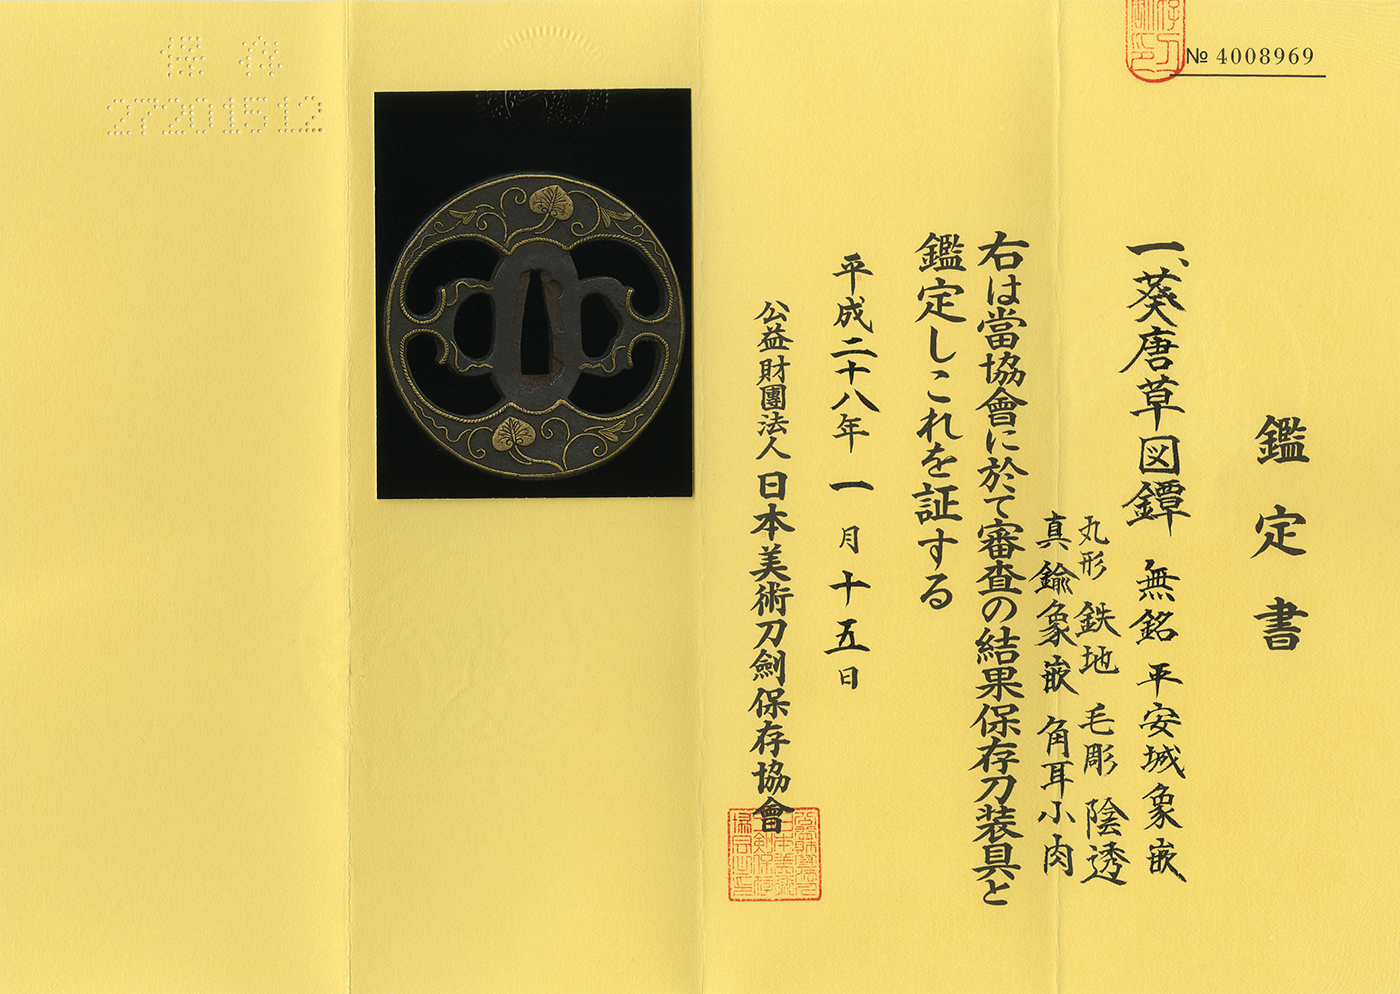 № 4008969
鑑定書
一、葵唐草図鐔 無銘 平安城象嵌
丸形 鉄地 毛彫 陰透
真鍮象嵌 角耳小肉
右は當協會に於て審査の結果保存刀装具と
鑑定しこれを証する
平成二十八年一月十五日
公益財團法人 日本美術刀劍保存協會
保存
27201512